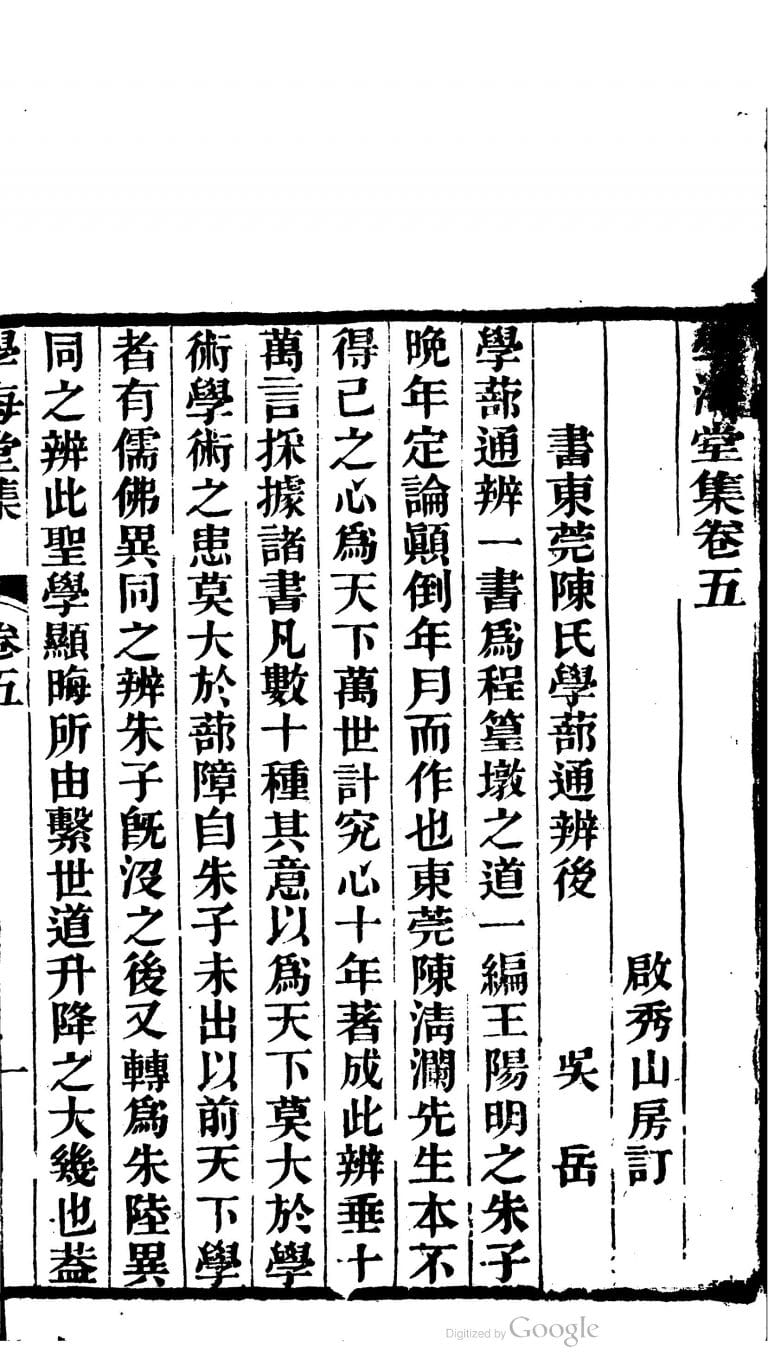 學海堂集卷五
啟秀山房訂
書東莞陳氏學蔀通辨後
吳岳
學蔀通辨一書爲程篁墩之道一編王陽明之朱子
晚年定論顚倒年月而作也東莞陳淸瀾先生本不
得已之心爲天下萬世計究心十年著成此辨垂十
萬言採據諸書凡數十種其意以爲天下莫大於學
術學術之患莫大於蔀障自朱子未出以前天下學
者有儒佛異同之辨朱子旣沒之後又轉爲朱陸異
同之辨此聖學顯晦所由繫世道升降之大幾也葢
學海堂集
卷五
一
Digitized by Google